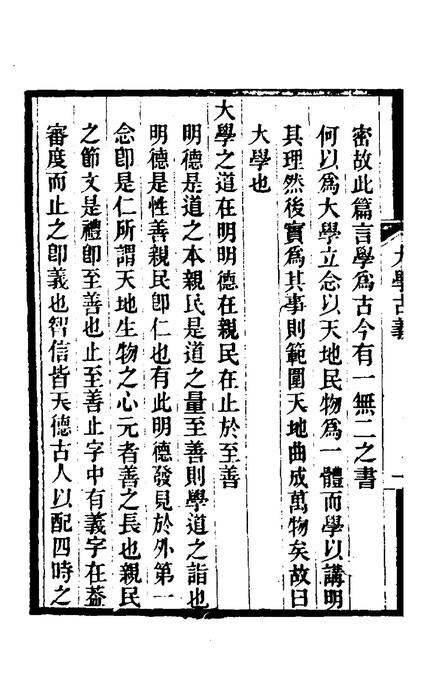 密故此篇言學爲古今有一無二之書
何以爲大學立念以天地民物爲一體而學以講明
其理然後實爲其事則範圍天地曲成萬物矣故曰
大學也
大學之道在明明德在親民在止於至善
明德是道之本親民是道之量至善則學道之詣也
明德是性善親民卽仁也有此明德發見於外第一
念卽是仁所謂天地生物之心元者善之長也親民
之節文是禮卽至善也止至善止字中有義字在葢
審度而止之卽義也智信皆天德古人以配四時之